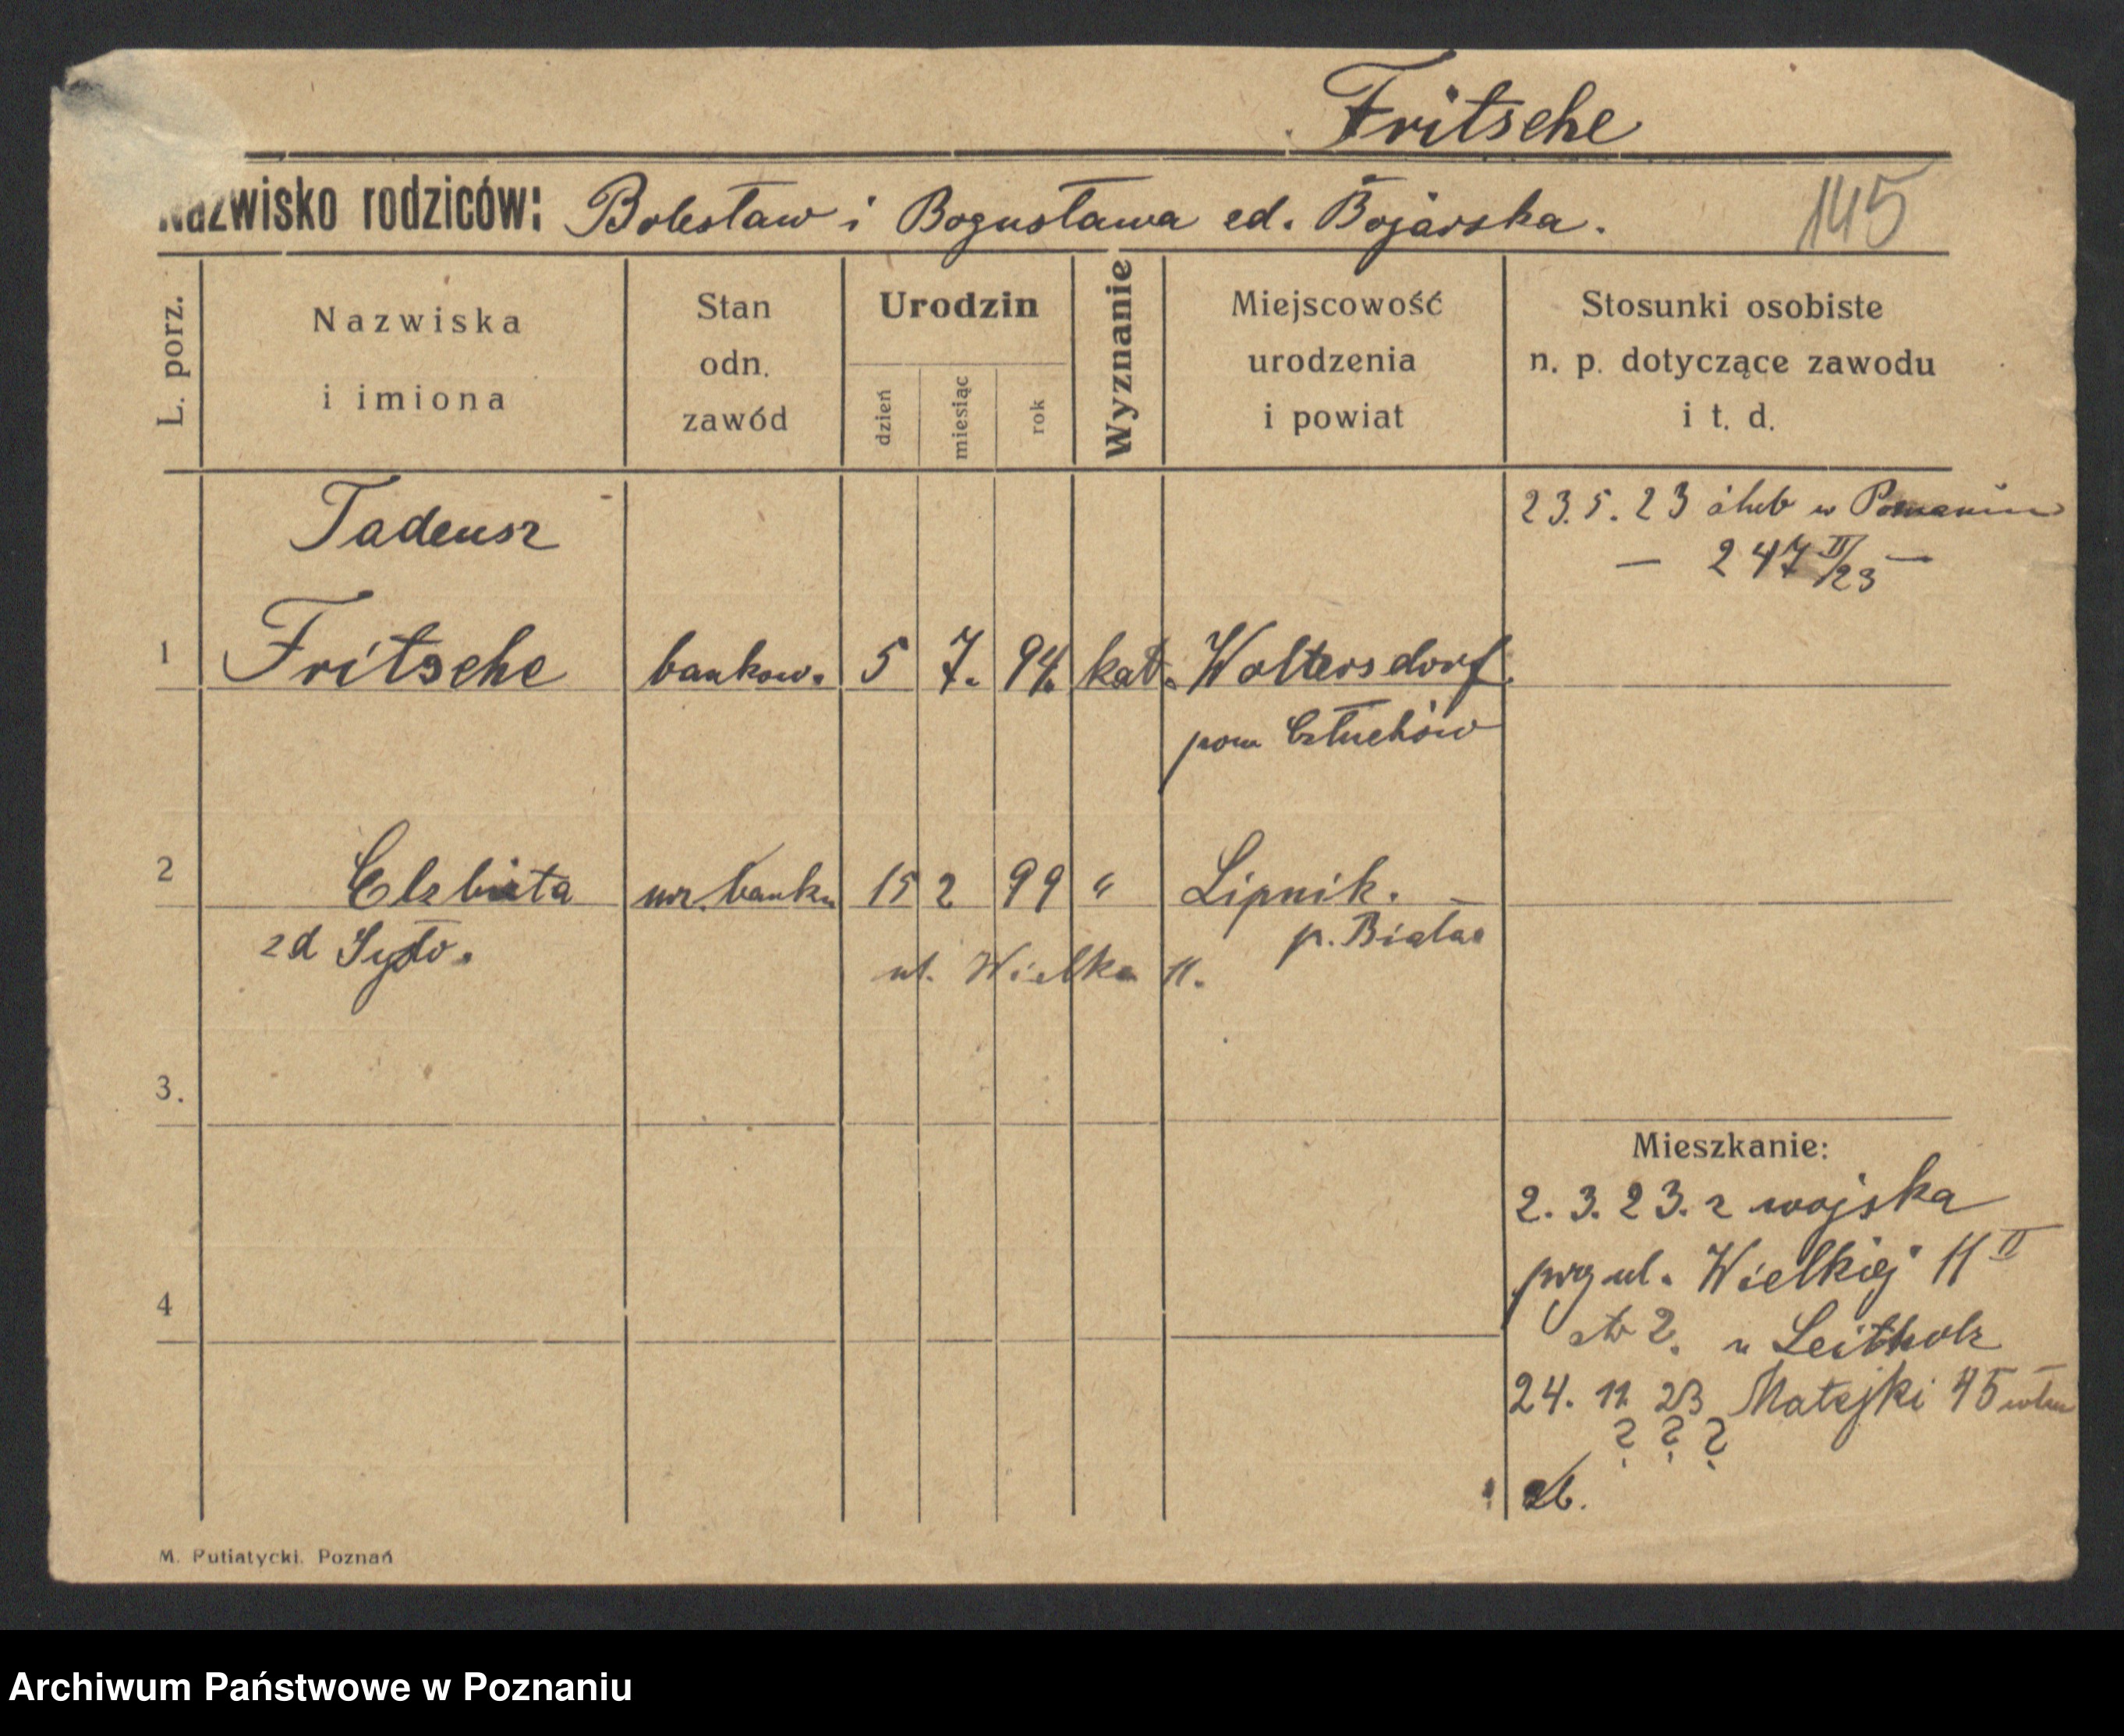 Fritsche
Nazwisko rodziców: Bolesław i Bogusława zd. Bojarska.
145
L. porz.
Nazwiska
i imiona
Stan
odn.
zawód
Urodzin
dzień
miesiąc
rok
Wyznanie
Miejscowość
urodzenia
i powiat
Stosunki osobiste
n. p. dotyczące zawodu
i t. d.
23.5.23 ślub w Poznaniu
— 247 II/23 —
Tadeusz
1 Fritsche bankow. 5 7. 94. kat. Woltersdorf.
pow Człuchów
2 Elzbieta urz. banku 15 2 99 " Lipnik.
p. Biała
zd
ul. Wielka 11.
3.
4
Mieszkanie:
2.3.23. z wojska
przy ul. Wielkiej 11 II
2. u Leitholz
24. 11 23 Matejki 45
? ? ?
M. Putiatycki. Poznań
Archiwum Państwowe w Poznaniu